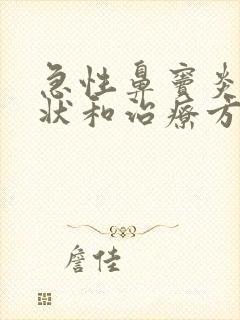 急性鼻窦炎
状和治疗方
詹佳